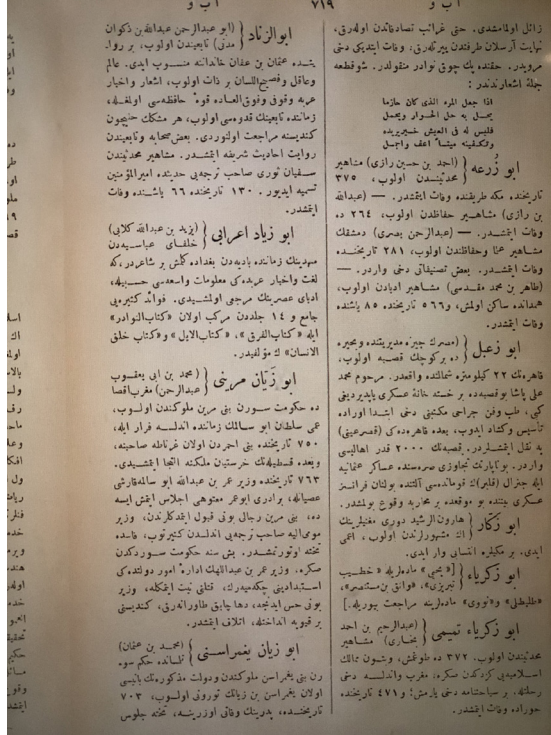 آ ب و
٧١٩
آ ب و
زائل اولمامشدی. حتی غرائب تصادفاتدن اوله‌رق،
نهایت آرسلان طرفندن ییرته‌رق، وفات ایتدیکی دخی
مرویدر. حقنده پك چوق نوادر منقولدر. شوقطعه
جملهٔ اشعارندندر :
اذا جعل المرء الذی كان حازما
یحمل به حل الحوار ویحمل
فلیس له فی العیش خیر یریده
وتكفینه میتاً اعف واجمل
ابو زُرعه
(احمد بن حسین رازی) مشاهیر
محدثیندن اولوب، ٣٧٥
تاریخنده مکه طریقنده وفات ایتمشدر. — (عبدالله
بن رازی) مشاهیر حفاظدن اولوب، ٢٦٤ ده
وفات ایتمشدر. — (عبدالرحمن بصری) دمشقك
مشاهیر علما وحفاظندن اولوب، ٢٨١ تاریخنده
وفات ایتمشدر. بعض تصنیفاتی دخی واردر. —
(طاهر بن محمد مقدسی) مشاهیر ادبادن اولوب،
همدانده ساکن اولمش، و٥٦٦ تاریخنده ٨٥ یاشنده
وفات ایتمشدر.
ابو زعبل
(مصرك جیزه مدیریتنده وبحیره
ده برکوچك قصبه اولوب،
قاهره‌نك ٢٢ کیلومتره شمالنده واقعدر. مرحوم محمد
علی پاشا بوقصبه‌ده بر خسته خانهٔ عسکری یاپدیردیغی
کبی، طب وفن جراحی مکتبنی دخی ابتدا اوراده
تأسیس وکشاد ایدوب، بعده قاهره‌ده‌کی (قصرعینی)
یه نقل ایتمشلردر. قصبه‌نك ٢٠٠٠ قدر اهالیسی
واردر. بوناپارتك تجاوزی صره‌سنده عساکر عثمانیه
ایله جنرال (قلابر)ك قوماندسی آلتنده بولنان فرانسز
عسکری بیننده بو موقعده بر محاربه وقوع بولمشدر.
ابو زكّار
هارون الرشید دوری مغنیلرینك
اك مشهورلرندن اولوب، اعمی
ایدی. بر مکیلره انتسابی وار ایدی.
ابو زکریاء
[«یحیی» ماده‌لریله «خطیب
تبریزی»، «واثق بن مستنصر»،
«طلیطلی» و«نووی» ماده‌لرینه مراجعت بیوریله.]
ابو زکریاء تمیمی
(عبدالرحیم بن احمد
بخاری) مشاهیر
محدثیندن اولوب. ٣٧٢ ده طوغمش، وشون ممالك
اسلامیه‌یی کزدکدن صکره، مغرب واندلسه دخی
رحلتله، بر سیاحتنامه دخی یازمش؛ و٤٧١ تاریخنده
حوراده وفات ایتمشدر.
ابو الزناد
(ابو عبدالرحمن عبدالله بن ذکوان
مدنی) تابعیندن اولوب، بر روا‌.
یتده عثمان بن عفان خانداننه منسوب ایدی. عالم
وعاقل وفصیح‌اللسان بر ذات اولوب، اشعار واخبار
عربه وقوفی وفوق‌العاده قوهٔ حافظه‌سی اولمغله،
زماننده تابعینك قدوه‌سی اولوب، هر مشکل ایچون
کندیسنه مراجعت اولنوردی. بعض صحابه وتابعیندن
روایت احادیث شریفه ایتمشدر. مشاهیر محدثیندن
سفیان ثوری صاحب ترجمه‌یی حدیثده امیرالمؤمنین
تسمیه ایدیور. ١٣٠ تاریخنده ٦٦ یاشنده وفات
ایتمشدر.
ابو زیاد اعرابی
(یزید بن عبدالله کلابی)
خلفای عباسیه‌دن
مهدینك زماننده بادیه‌دن بغداده کلمش بر شاعردر، که
لغت واخبار عربده‌کی معلومات واسعه‌سی حسبیله،
ادبای عصرینك مرجعی اولمشیدی. فوائد کثیره‌یی
جامع و ١٤ جلددن مرکب اولان «کتاب‌النوادر»
ایله «کتاب‌الفرق»، «کتاب‌الابل» و«کتاب خلق
الانسان» ك مؤلفیدر.
ابو زیّان مرینی
(محمد بن ابی یعقوب
عبدالرحمن) مغرب‌اقصا
ده حکومت سورن بنی مرین ملوکندن اولوب،
عمی سلطان ابو سالمك زماننده اندلسه فرار ایله،
٧٥٠ تاریخنده بنی احمردن اولان غرناطه صاحبنه،
وبعده قسطیله‌نك خرستیان ملکنه التجا ایتمشیدی.
٧٦٣ تاریخنده وزیر عمر بن عبدالله ابو سالمه قارشی
عصیانله، برادری ابوعمر معتوهی اجلاس ایتمش ایسه
ده، بنی مرین رجالی بونی قبول ایتمدکلرندن، وزیر
مومی‌الیه صاحب ترجمه‌یی اندلسدن کتیرتوب، فاسده
تخته اوتورتمشدر. بش سنه حکومت سوردکدن
صکره، وزیر عمر بن عبداللهك ادارهٔ امور دولتده‌کی
استبدادینی چکه‌میه‌رك، قتلنی نیت ایتمکله، وزیر
بونی حس ایدنجه، دها چابق طاورانه‌رق، کندیسنی
بر قیویه انداختله، اتلاف ایتمشدر.
ابو زیان یغمراسنی
(محمد بن عثمان)
تلمسانده حکم سو‌.
رن بنی یغمراسن ملوکندن ودولت مذکوره‌نك بانیسی
اولان یغمراسن بن زیانك تورونی اولوب، ٧٠٣
تاریخنده، پدرینك وفاتی اوزرینه، تخته جلوس